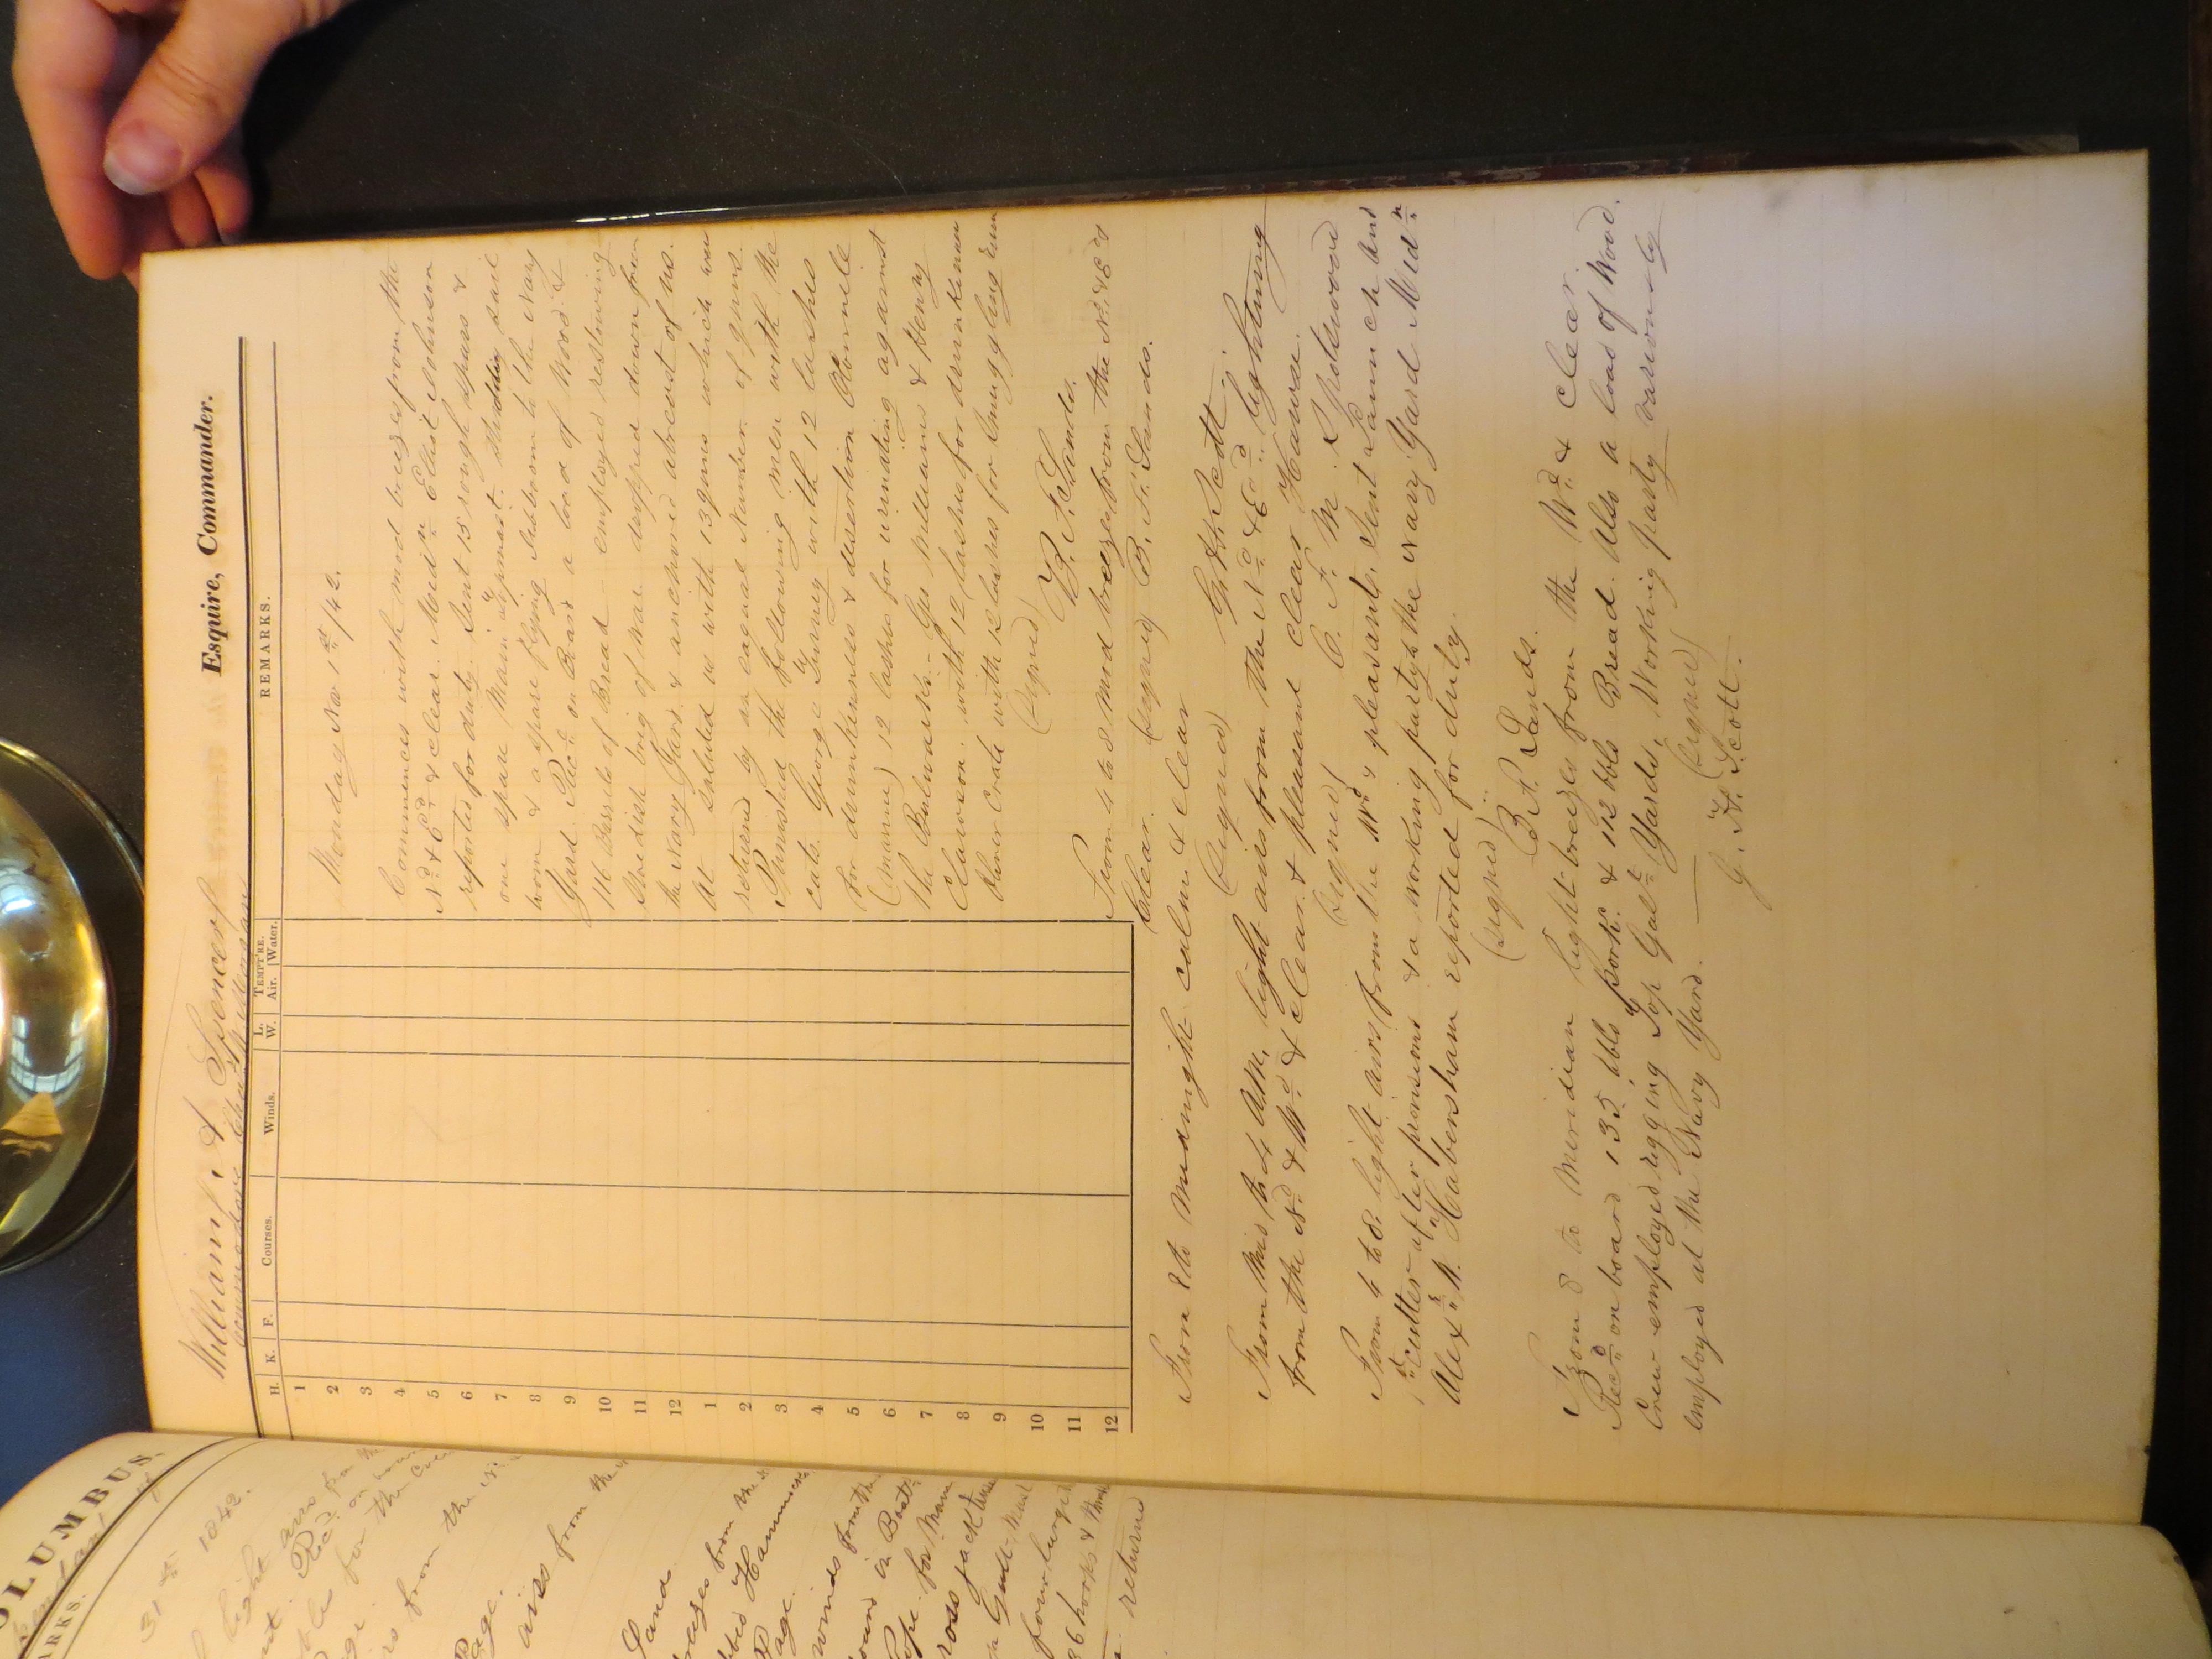 COLUMBUS,
REMARKS.
31st 1842.
light airs from the
Recd on
for the
from the
Page.
airs from the
Sand
breezes from the
Hammocks
Page.
winds from the
in Boats
rope for Main
cross jack
four
86 hooks &
returned
William A. Spencer Esquire, Commander.
Commodore Chas W. Morgan
H. K. F. Courses. Winds. L. W. TEMPT'RE. Air. Water. REMARKS.
1
2
3
4
5
6
7
8
9
10
11
12
1
2
3
4
5
6
7
8
9
10
11
12
Monday Nov 1st /42.
Commences with mod breezes from the
Nd & Ed & clear. Midn Elliot Johnson
reported for duty. Sent 15 rough spars &
one spare Main topmast, studding sail
boom & a spare flying Jibboom to the Navy
Yard. Recd on Board a load of Wood &
116 Barrels of Bread employed restowing
Swedish brig of war dropped down from
the Navy Yard & anchored abreast of us.
At saluted us with 13 guns which were
returned by an equal Number of guns.
Punished the following men with the
cats. George Turney with 12 lashes
for drunkenness & desertion
(marine) 12 lashes for urinating against
the Bulwarks. Geo Williams & Henry
Clawson with 12 lashes for drunkenness
Oliver Crate with 12 lashes for smuggling rum
(signed) B. F. Sands.
From 4 to 8 mod breezes from the Nd & Ed
Clear. (signed) B. F. Sands.
From 8 to Midnight calm & clear
(signed) G. H. Scott.
From this to 4 AM, light airs from the Nd & Ed lightning
from the Nd & Wd & clear & pleasant clear Hawse.
(signed) C. F. M. Spotswood
From 4 to 8 light airs from the Wd & pleasant, Sent Launch and
1st Cutter after provisions & a working party to the Navy Yard Midn
Alexr W. Habersham reported for duty.
(signed) B. F. Sands.
From 8 to Meridian light breezes from the Wd & clear.
Recd on board 135 bbls pork & 112 bbls Bread. Also a load of Wood.
Crew employed rigging Top Galt Yards, Working party variously
employed at the Navy Yard. (signed)
G. H. Scott.